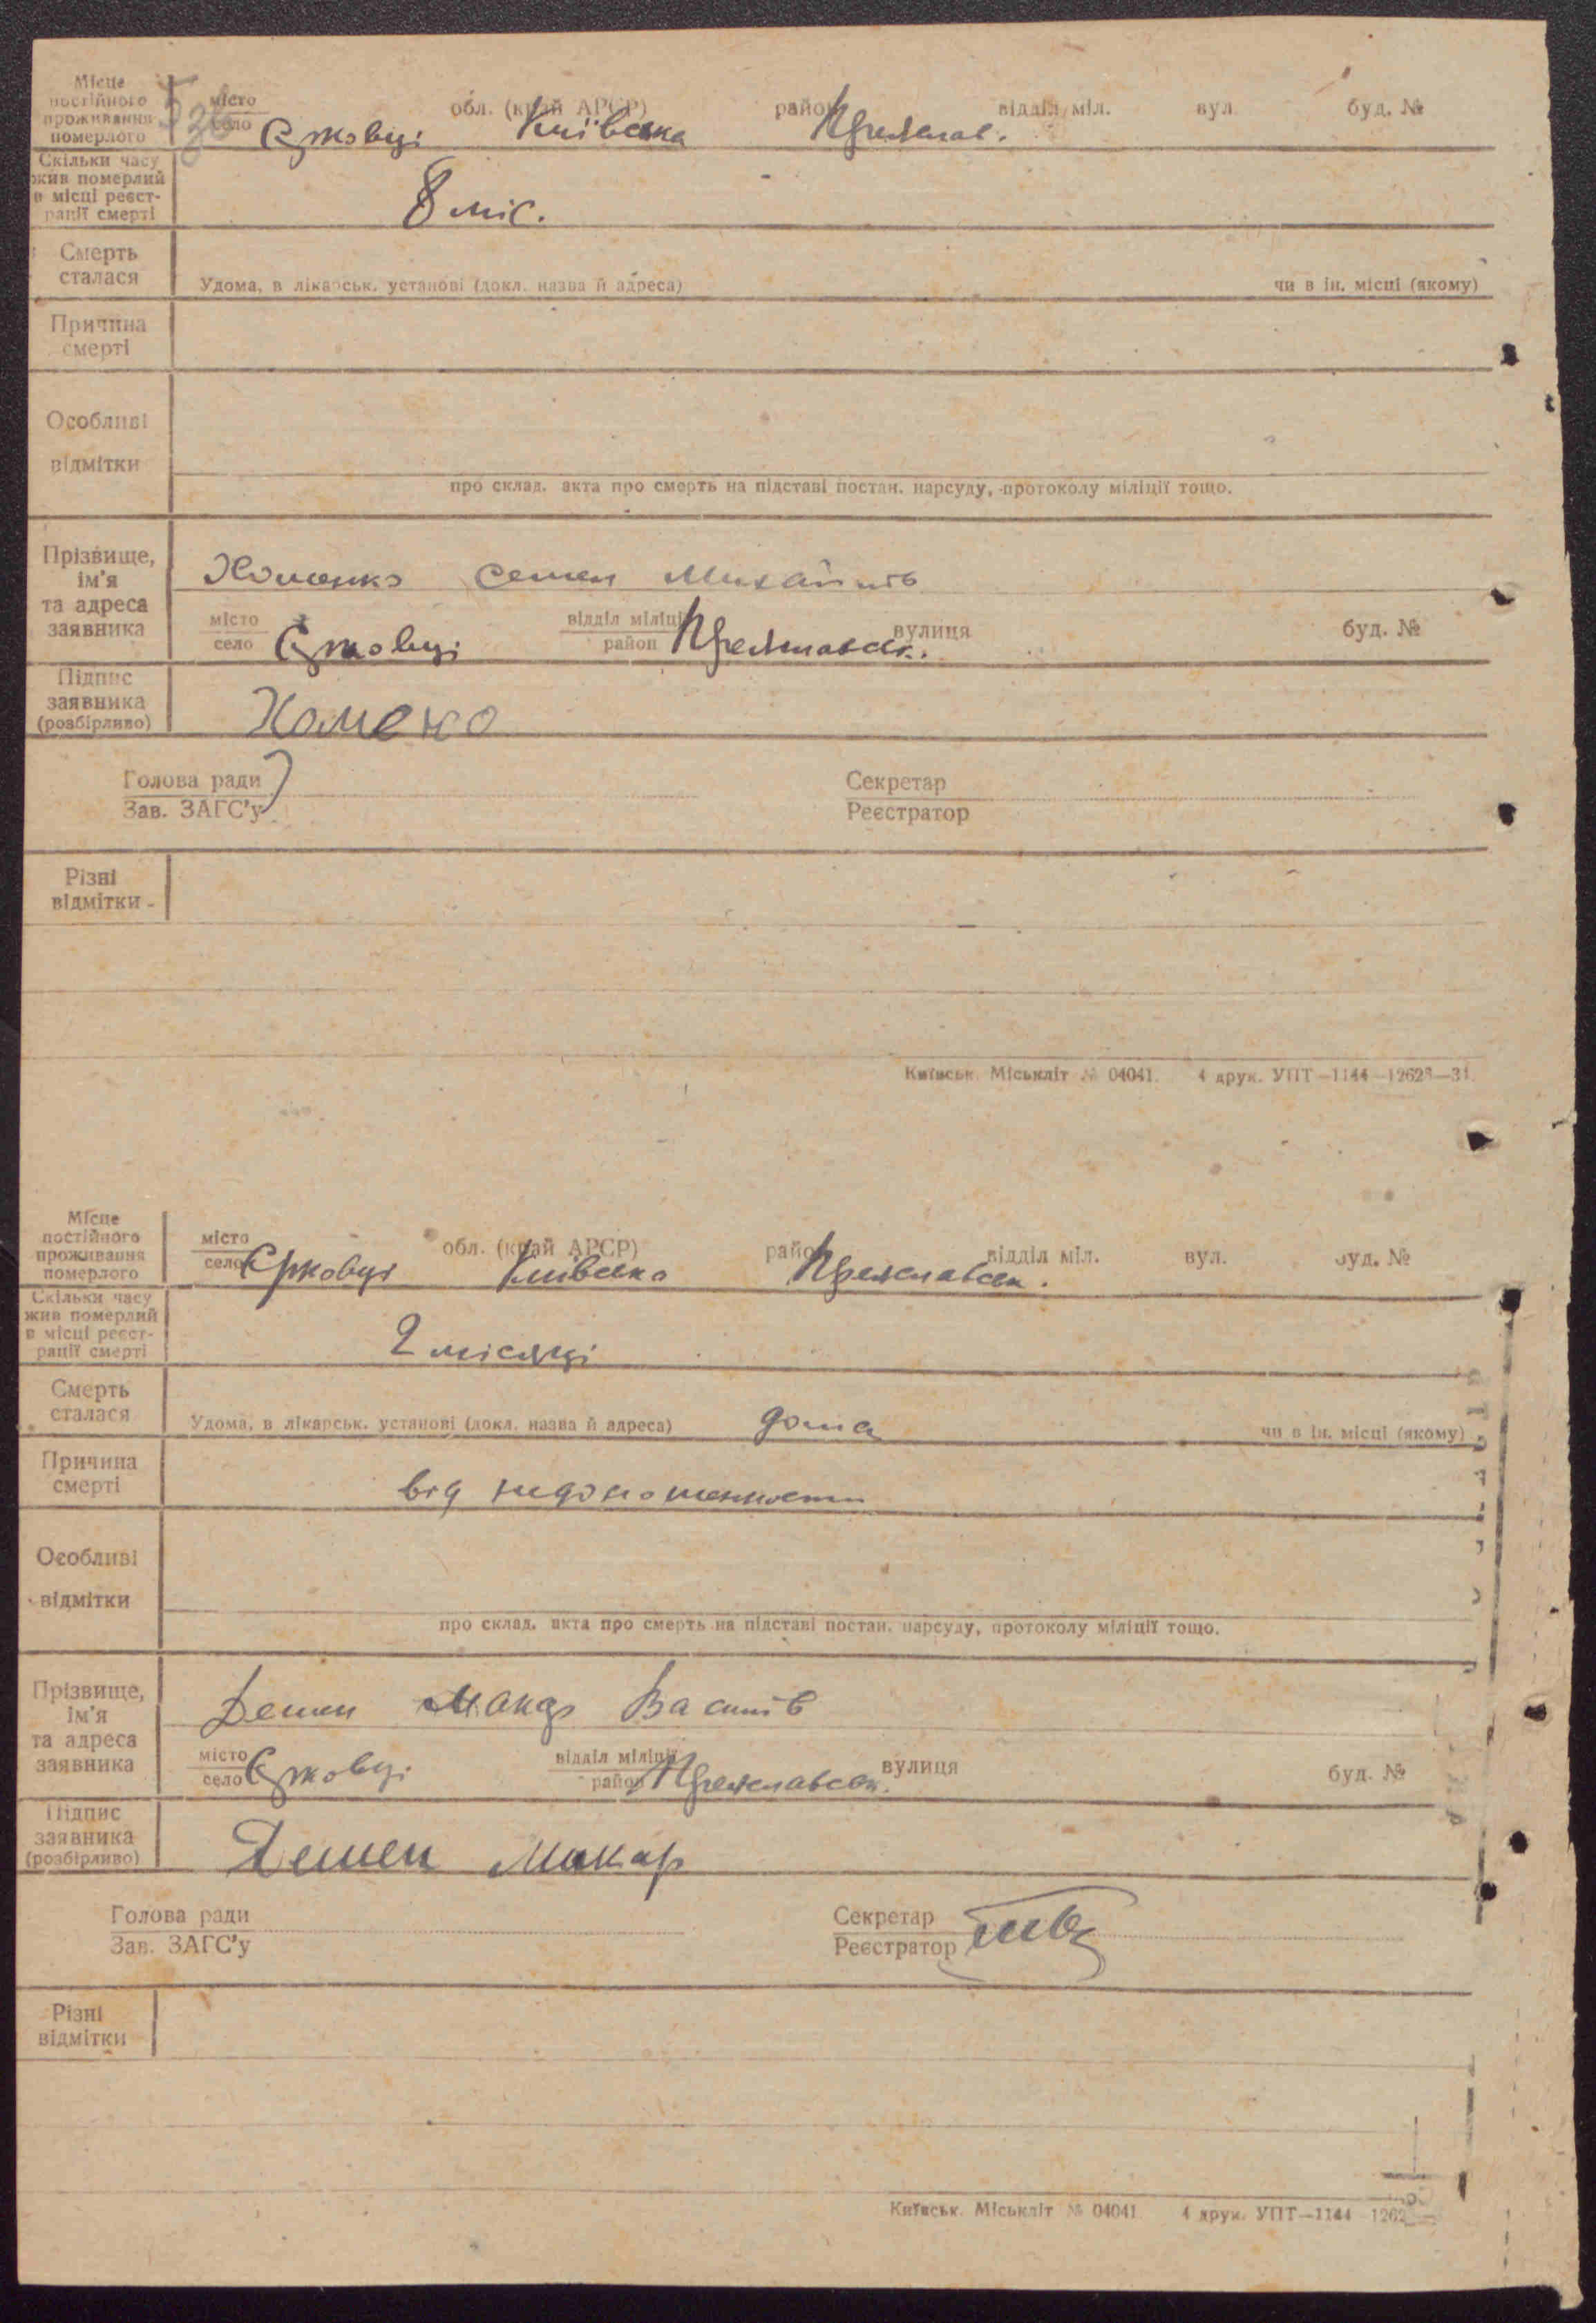 Місце постійного проживання померлого
місто село Єрковці обл. (край АРСР) Київська район Преяслав. відділ міл. вул. буд. №
Скільки часу жив померлий в місці реєстрації смерті
8 міс.
Смерть сталася
Удома, в лікарськ. установі (докл. назва й адреса) чи в ін. місці (якому)
Причина смерті
Особливі відмітки
про склад. акта про смерть на підставі постан. нарсуду, протоколу міліції тощо.
Прізвище, ім'я та адреса заявника
Хоменко Семен Михайлів
місто село Єрковці відділ міліції район Преяславськ. вулиця буд. №
Підпис заявника (розбірливо)
Хомено
Голова ради Секретар
Зав. ЗАГС'у Реєстратор
Різні відмітки
Київськ. Міськліт № 04041. 4 друк. УПТ—1144—12623—31.
Місце постійного проживання померлого
місто село Єрковці обл. (край АРСР) Київська район Преяславськ. відділ міл. вул. буд. №
Скільки часу жив померлий в місці реєстрації смерті
2 місяці
Смерть сталася
Удома, в лікарськ. установі (докл. назва й адреса) дома чи в ін. місці (якому)
Причина смерті
від недоношенности
Особливі відмітки
про склад. акта про смерть на підставі постан. нарсуду, протоколу міліції тощо.
Прізвище, ім'я та адреса заявника
Демен Макар Василів
місто село Єрковці відділ міліції район Преяславськ. вулиця буд. №
Підпис заявника (розбірливо)
Демен Макар
Голова ради Секретар
Зав. ЗАГС'у Реєстратор
Різні відмітки
Київськ. Міськліт № 04041. 4 друк. УПТ—1144